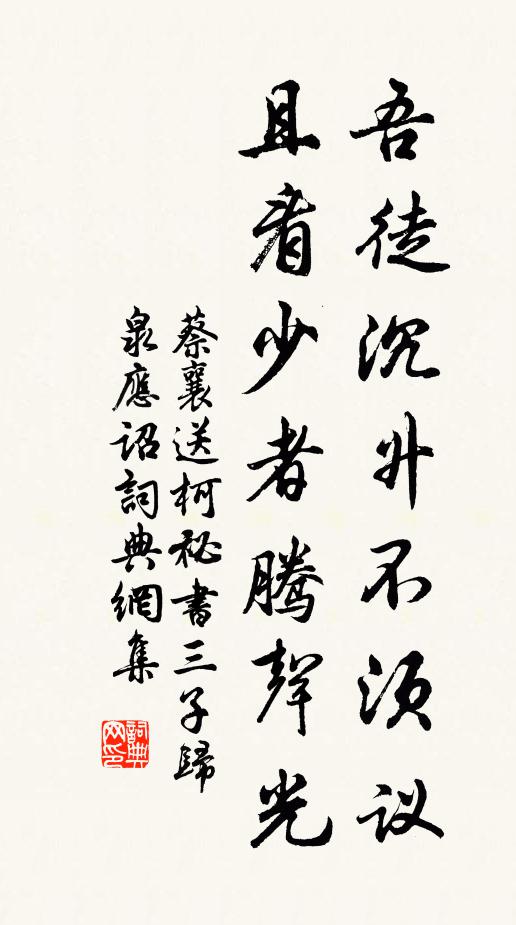 吾徒沉升不须议
且看少者腾聲光
蔡襄送柯祕書三子歸
泉應詔詞典網集
詞典
网印